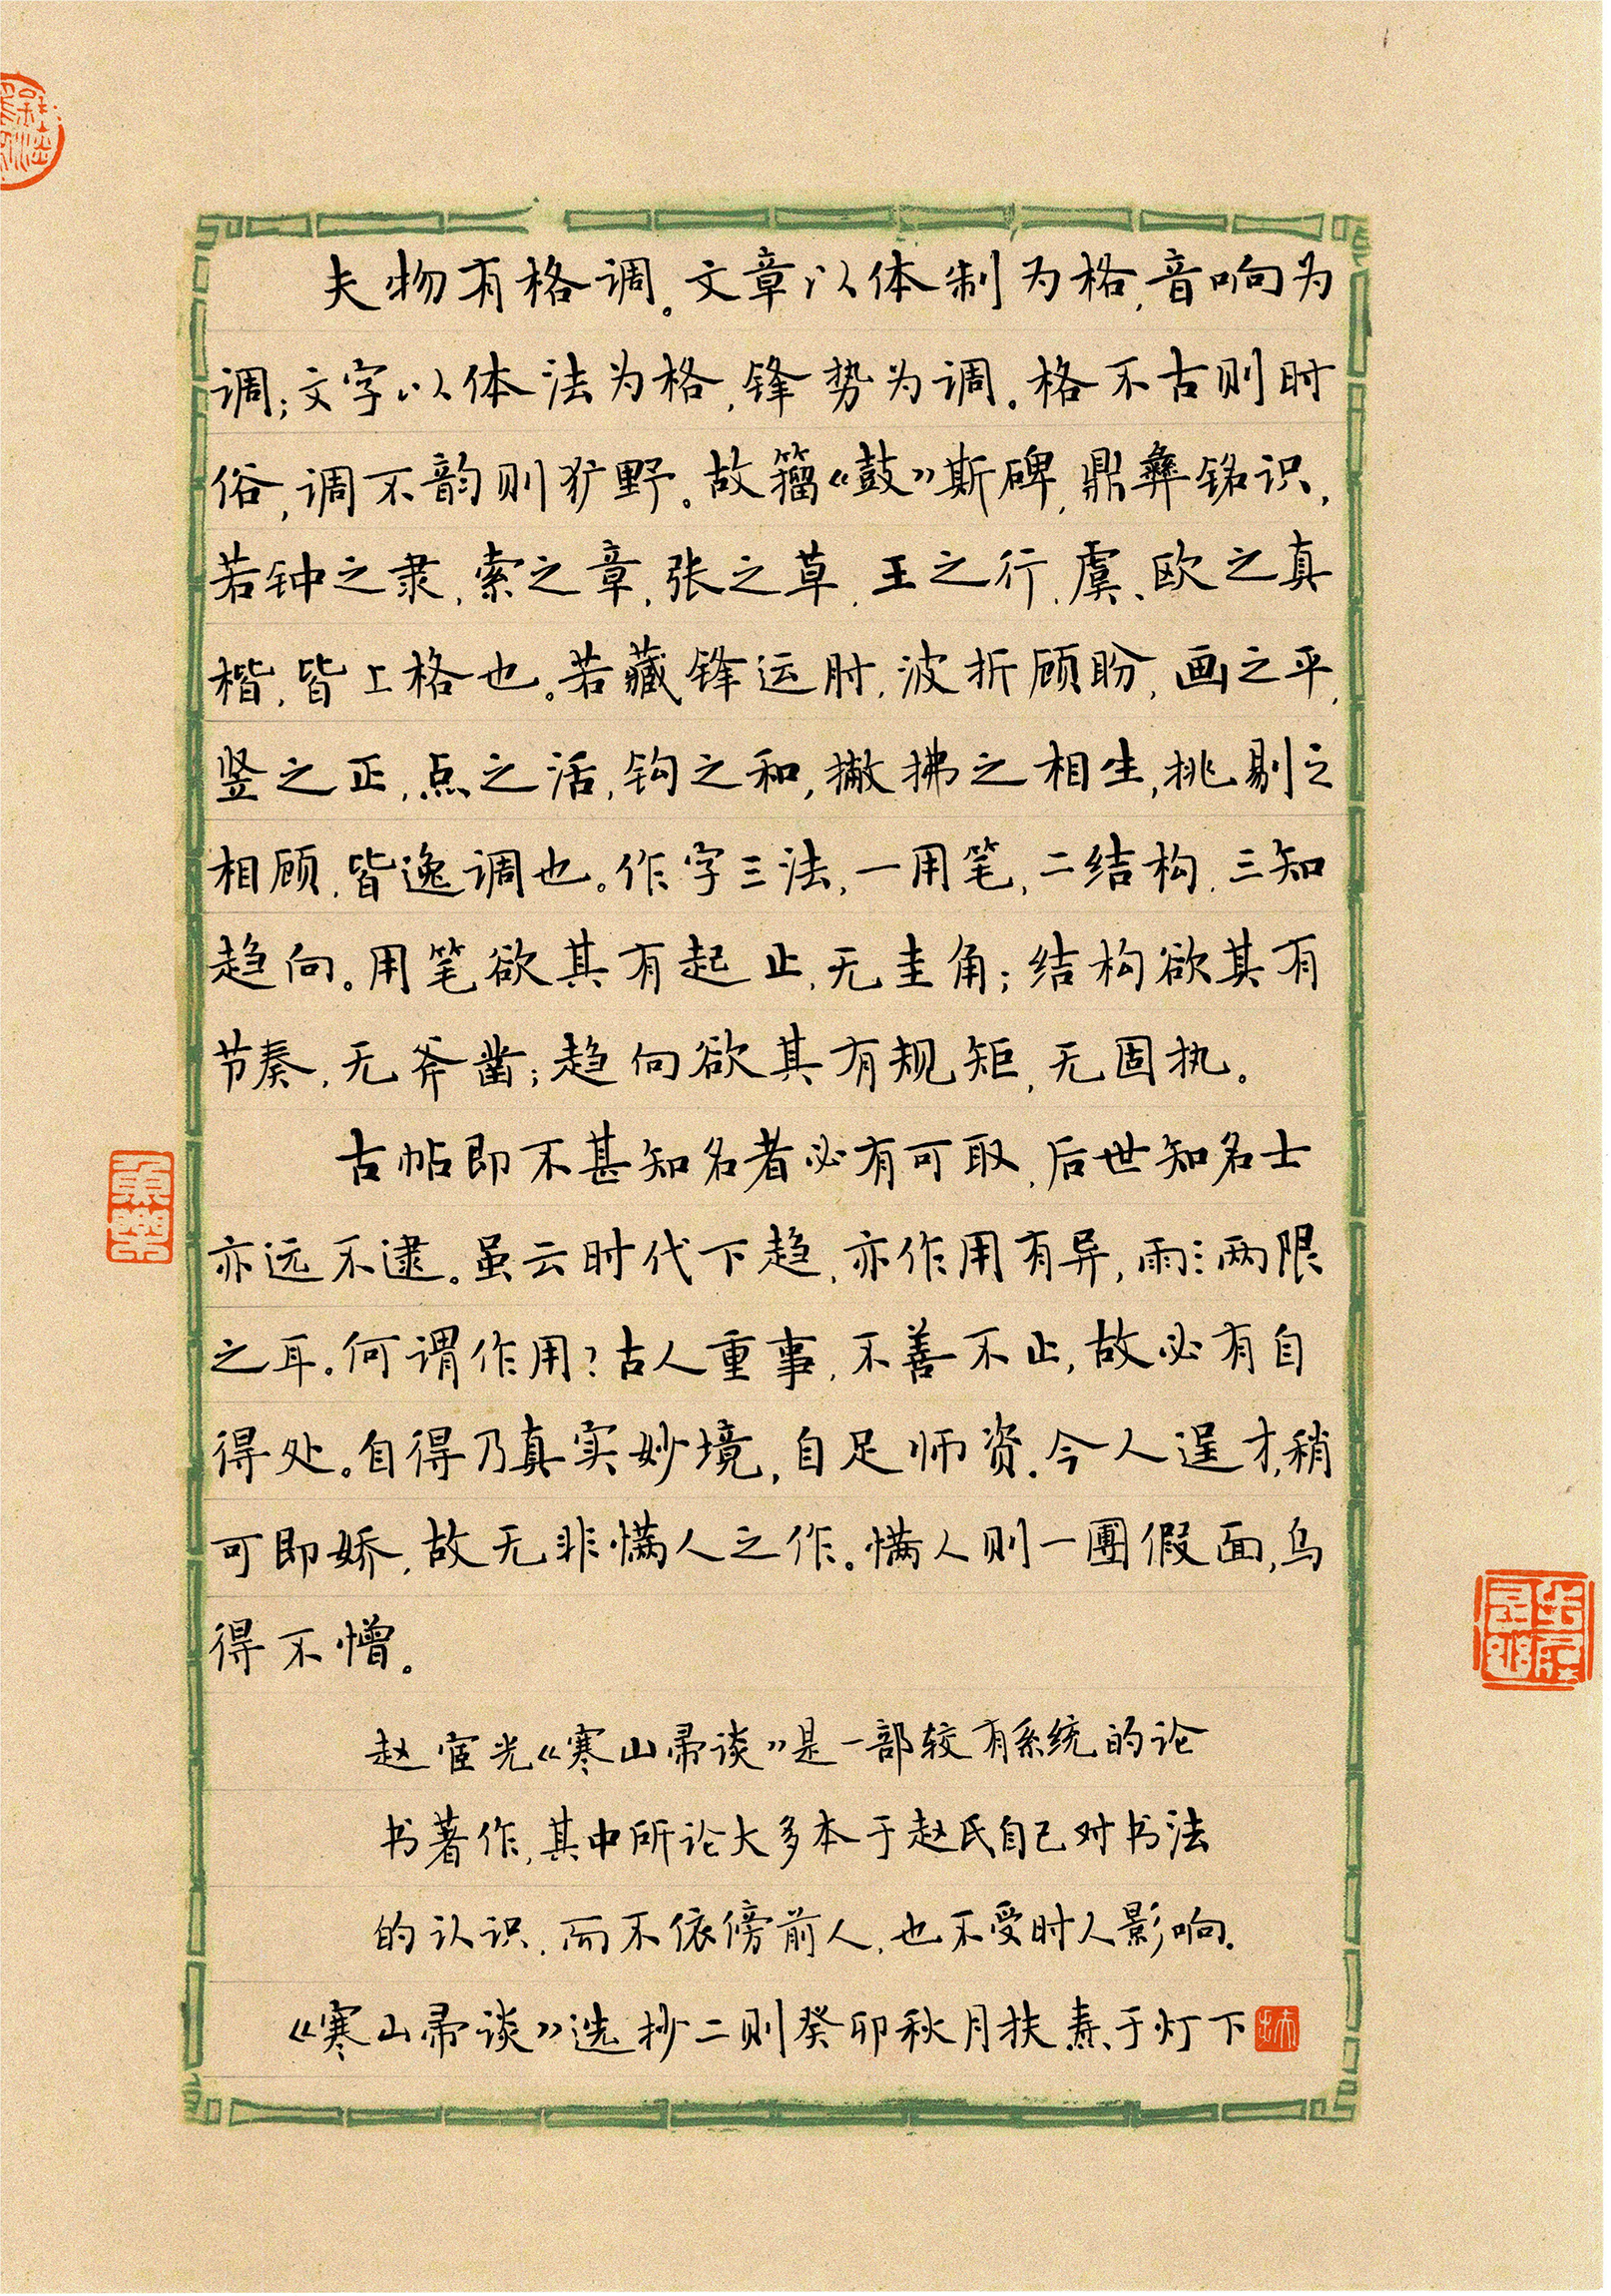 夫物有格调。文章以体制为格,音响为
调;文字以体法为格,锋势为调。格不古则时
俗,调不韵则犷野。故籀《鼓》斯碑,鼎彝铭识,
若钟之隶,索之章,张之草,王之行,虞、欧之真
楷,皆上格也。若藏锋运肘,波折顾盼,画之平,
竖之正,点之活,钩之和,撇拂之相生,挑剔之
相顾,皆逸调也。作字三法,一用笔,二结构,三知
趋向。用笔欲其有起止,无圭角;结构欲其有
节奏,无斧凿;趋向欲其有规矩,无固执。
古帖即不甚知名者必有可取,后世知名士
亦远不逮。虽云时代下趋,亦作用有异,雨:两限
之耳。何谓作用?古人重事,不善不止,故必有自
得处。自得乃真实妙境,自足师资.今人逞才,稍
可即娇,故无非慲人之作。慲人则一團假面,乌
得不憎。
赵宦光《寒山帚谈》是一部较有系统的论
书著作,其中所论大多本于赵氏自己对书法
的认识,而不依傍前人,也不受时人影响.
《寒山帚谈》选抄二则癸卯秋月扶焘于灯下